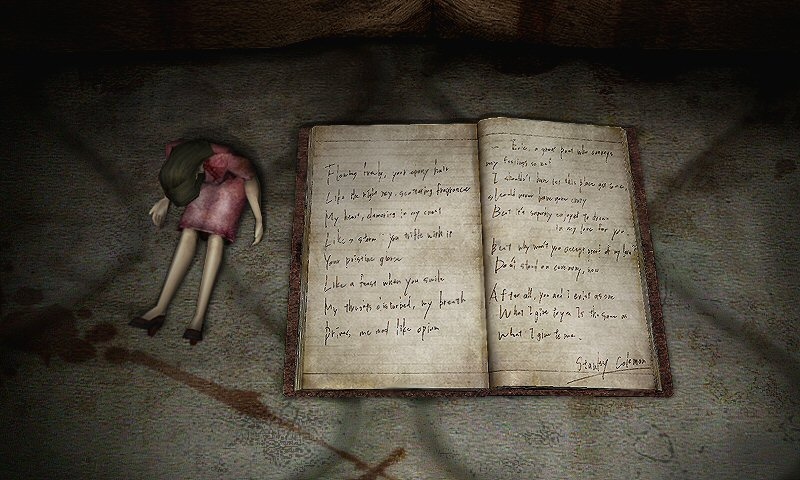 Flowing freely, your ebony hair
Like the night sky, scattering fragrance
My heart, dancing in my
Like a storm you trifle with it
Your piercing glance
Like a feast when you smile
My throat's disturbed, my breath
Drives me mad like opium
a great poet who conveys
my feelings so well
I wouldn't have let this place get to me,
I could never have gone crazy
But it's superbly enjoyed to drown
in my love for you.
But why won't you accept proof of my love?
Don't stand on ceremony, now
After all, you and I exist as one
What I give to you Is the same as
What I give to me.
Stanley Coleman